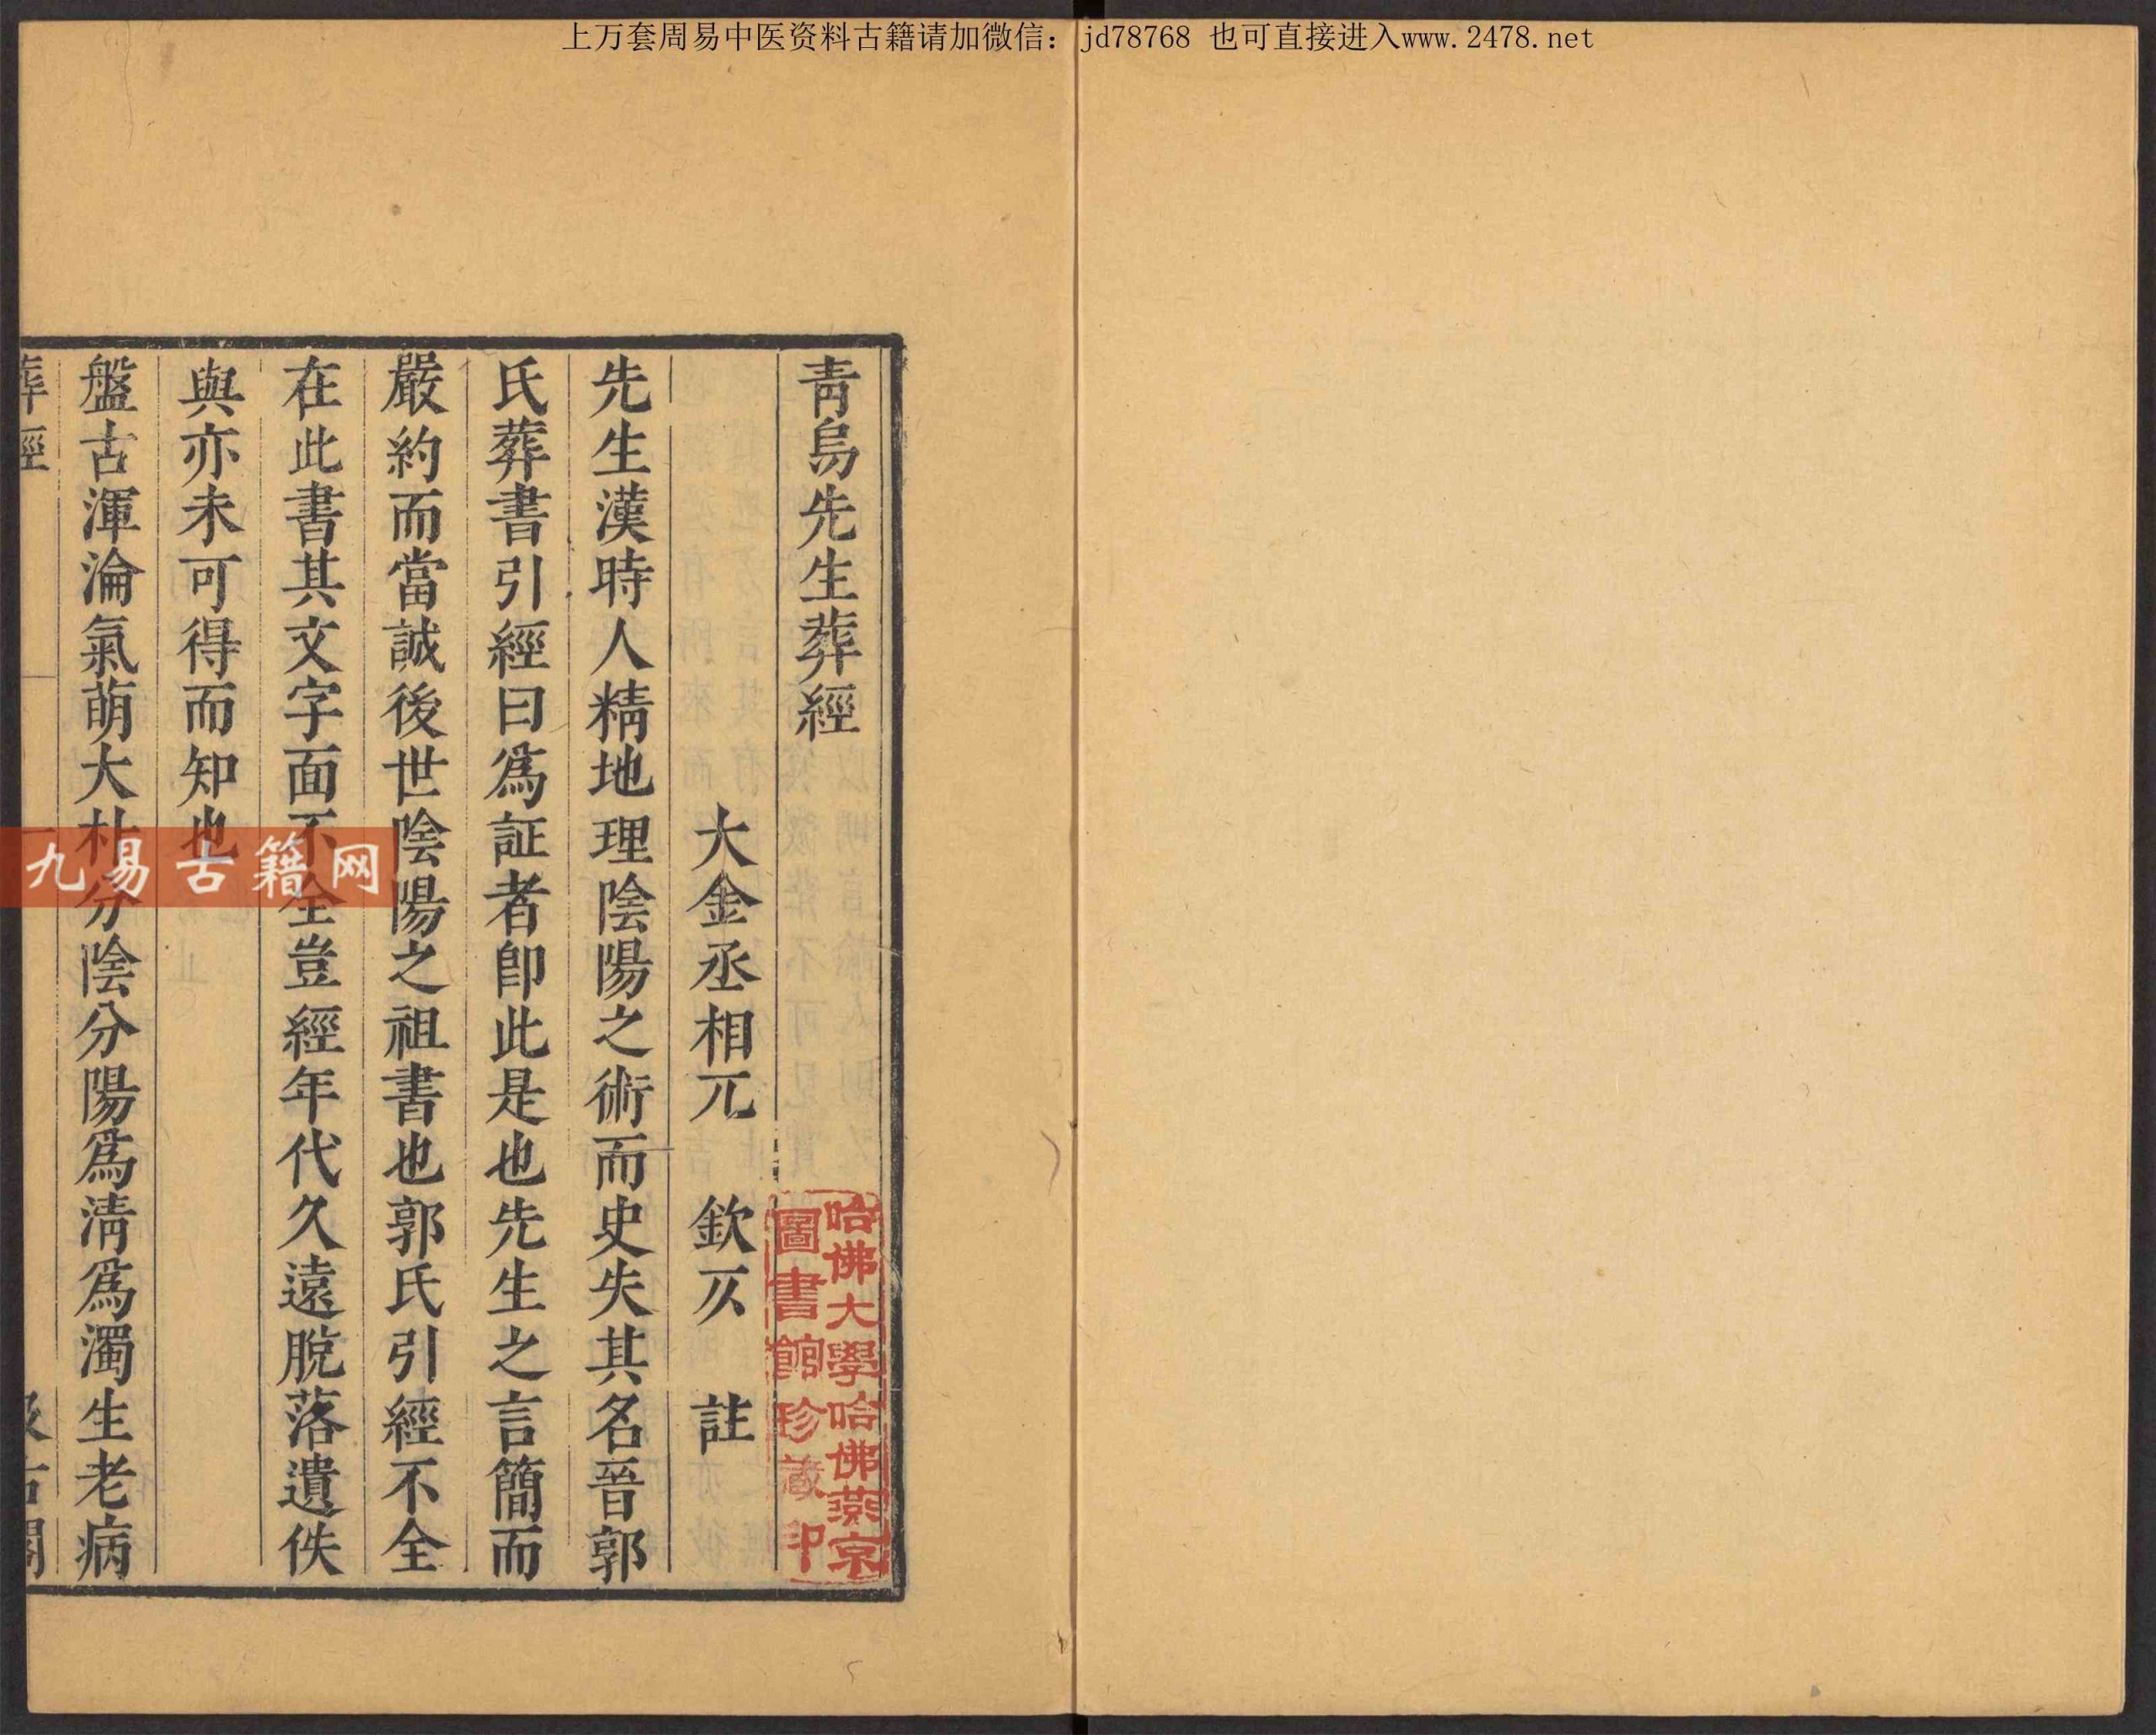 上万套周易中医资料古籍请加微信：jd78768 也可直接进入www.2478.net
青烏先生葬經
大金丞相兀　欽仄　註
先生漢時人精地理陰陽之術而史失其名晉郭
氏葬書引經曰爲証者卽此是也先生之言簡而
嚴約而當誠後世陰陽之祖書也郭氏引經不全
在此書其文字面不全豈經年代久遠脫落遺佚
與亦未可得而知也
盤古渾淪氣萌大朴分陰分陽爲清爲濁生老病
葬經
汲古閣
哈佛大學哈佛燕京
圖書館珍藏印
九易古籍网